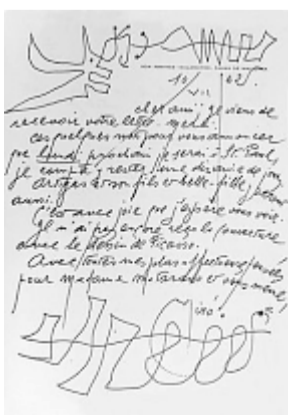 10/VII 62.
cher ami, je viens de
recevoir votre lettre. merci.
ces quelques mots pour vous annoncer
que lundi prochain je serai à St. Paul,
je compte y rester une dizaine de jours
Artigas et son fils et belle-fille, seront
aussi.
C'est avec joie que j'espère vous voir.
Je n'ai pas encore reçu la couverture
avec le dessin de Picasso.
Avec toutes mes plus affectueuses
pour madame et vous même,
Miró.